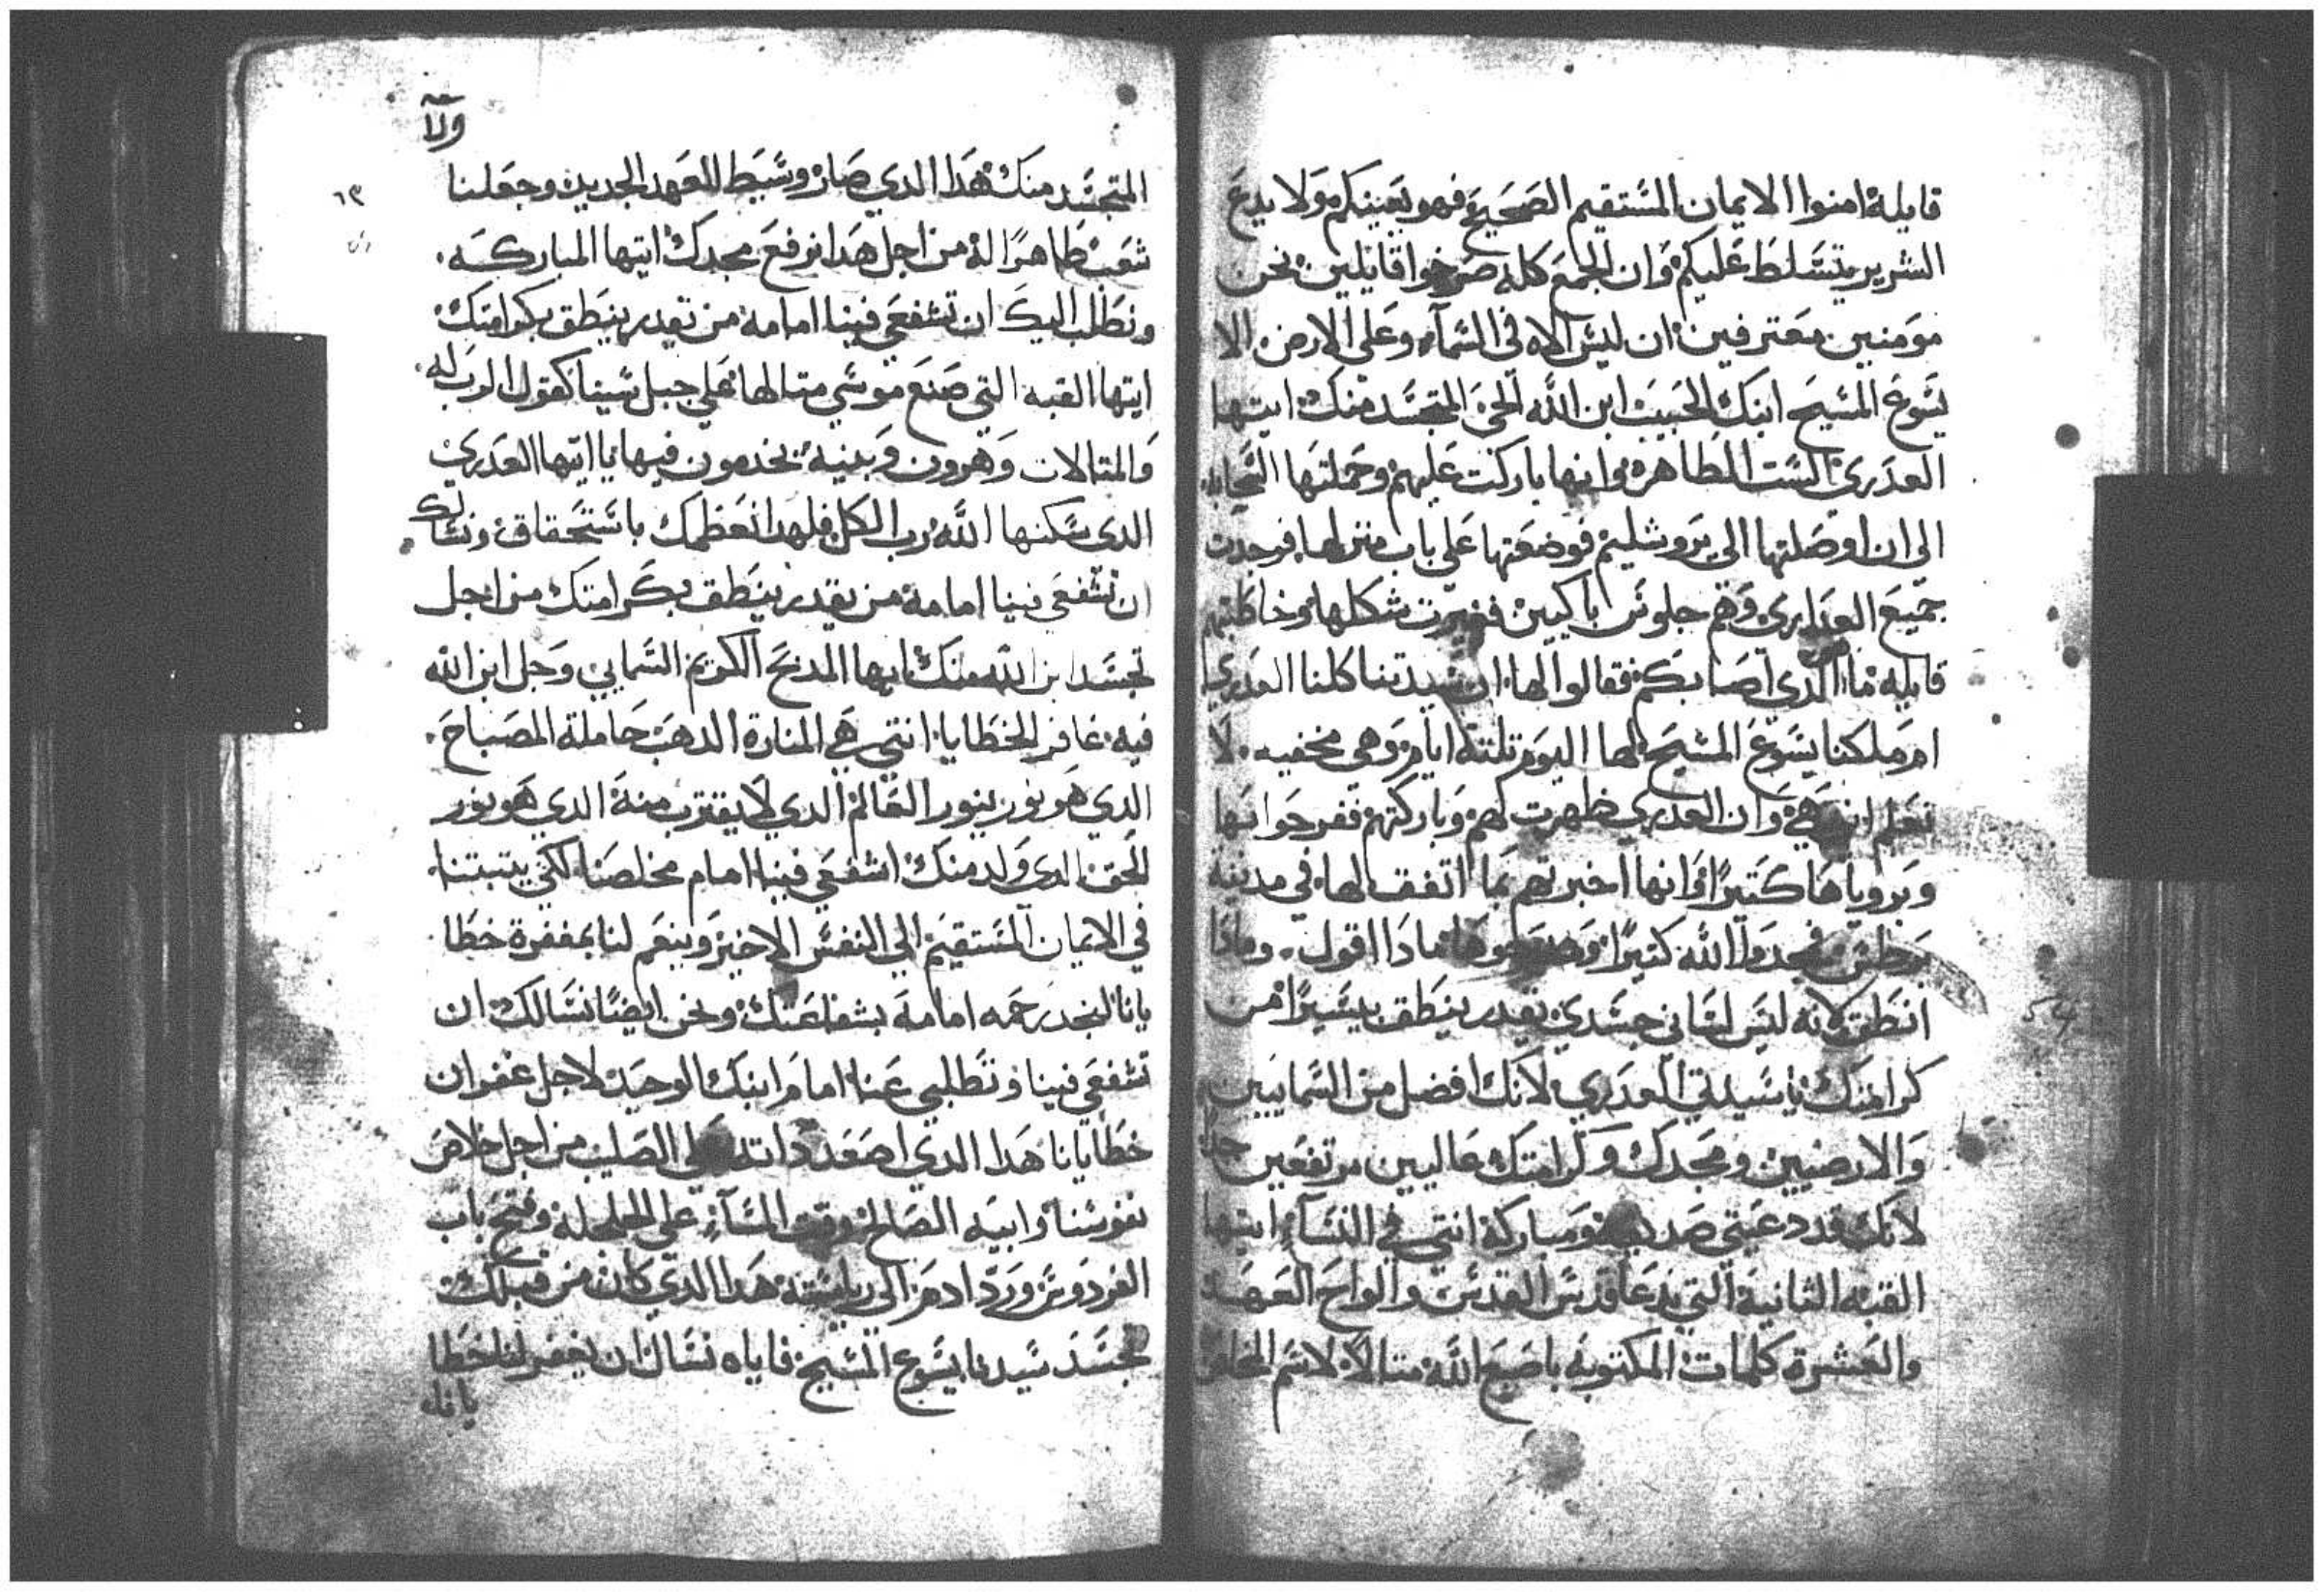 قايلة امنوا الايمان المستقيم الصحيح فهو يعينكم ولا يدع
الشرير يتسلط عليكم وان الجمع كله صرخوا قايلين نحن
مومنين معترفين ان ليس الاه في السمآء وعلى الارض الا
يسوع المسيح ابنك الحبيب ابن الله الحي المتجسد منك ايتها
العدري الست الطاهرة وانها باركت عليهم وحملتها السحابه
الى ان اوصلتها الى يروشليم فوضعتها على باب منزلها فوجدت
جميع العداري وهم جلوس باكيين فغيرت شكلها وخاطبتهم
قايله ما الدي اصابكم فقالوا لها ان سيدتنا كلنا العدري
ام ملكنا يسوع المسيح لها اليوم تلتة ايام وهي مخفيه لا
نعلم اين هي وان العدري ظهرت لهم وباركتهم ففرحوا بها
وبروياها كتيرًا وانها اخبرتهم بما اتفق لها في مدينة
برطس فمجدوا الله كتيرًا مادا اقول ومادا
انطق لانه ليس لساني جسدي يقدر ينطق يسيرًا من
كرامتك يا سيدتي العدري لانك افضل من السمايين
والارضيين ومجدك وكرامتك عاليين مرتفعين جدًا
لانك قد دعيتي صديقة ومباركة انتي في النسآء ايتها
القبه الثانية التي تدعا قدس القدس والواح العهد
والعشرة كلمات المكتوبه باصبع الله متالًا لاسم الخلاص
ولآ
المتجسد منك هدا الدي صار وسيط العهد الجديد وجعلنا
٦٣
شعب طاهرًا له من اجل هدا نرفع مجدك ايتها المباركه
ونطلب اليك ان تشفعي فينا امامة من تقدر ينطق بكرامتك
ايتها القبه التي صنع موسي متالها على جبل سينا كقول الرب له
والمتالات وهرون وبنيه يخدمون فيها يا ايتها العدري
الدي سكنها الله رب الكل فلهدا نعظمك باستحقاق ونسالك
ان تشفعي فينا امامة من يقدر ينطق بكرامتك من اجل
تجسد ابن الله منك ايها المدبح الكريم السمايي وحل ابن الله
فيه غافر الخطايا انتي هي المنارة الدهب حاملة المصباح
الدي هو نور ينور العالم الدي لا يقترب منة الدي هو نور
الحق الدي ولد منك اشفعي فينا امام مخلصنا لكي يتبتنا
في الايمان المستقيم الي النفس الاخير وينعم لنا بمغفرة خطا
يانا لنجد رحمه امامة بشفاعتك ونحن ايضًا نسالك ان
تشفعي فينا وتطلبي عنا امام ابنك الوحيد لاجل غفران
خطايانا هدا الدي اصعد داته على الصليب من اجل خلاص
نفوسنا وابيه الصالح وقت المسآء على الجلجلة وفتح باب
الفردوس ورد ادم الى رياسته هدا الدي كان من قبلك
تجسد سيدنا يسوع المسيح فاياه نسال ان يغفر لنا خطا
يانا